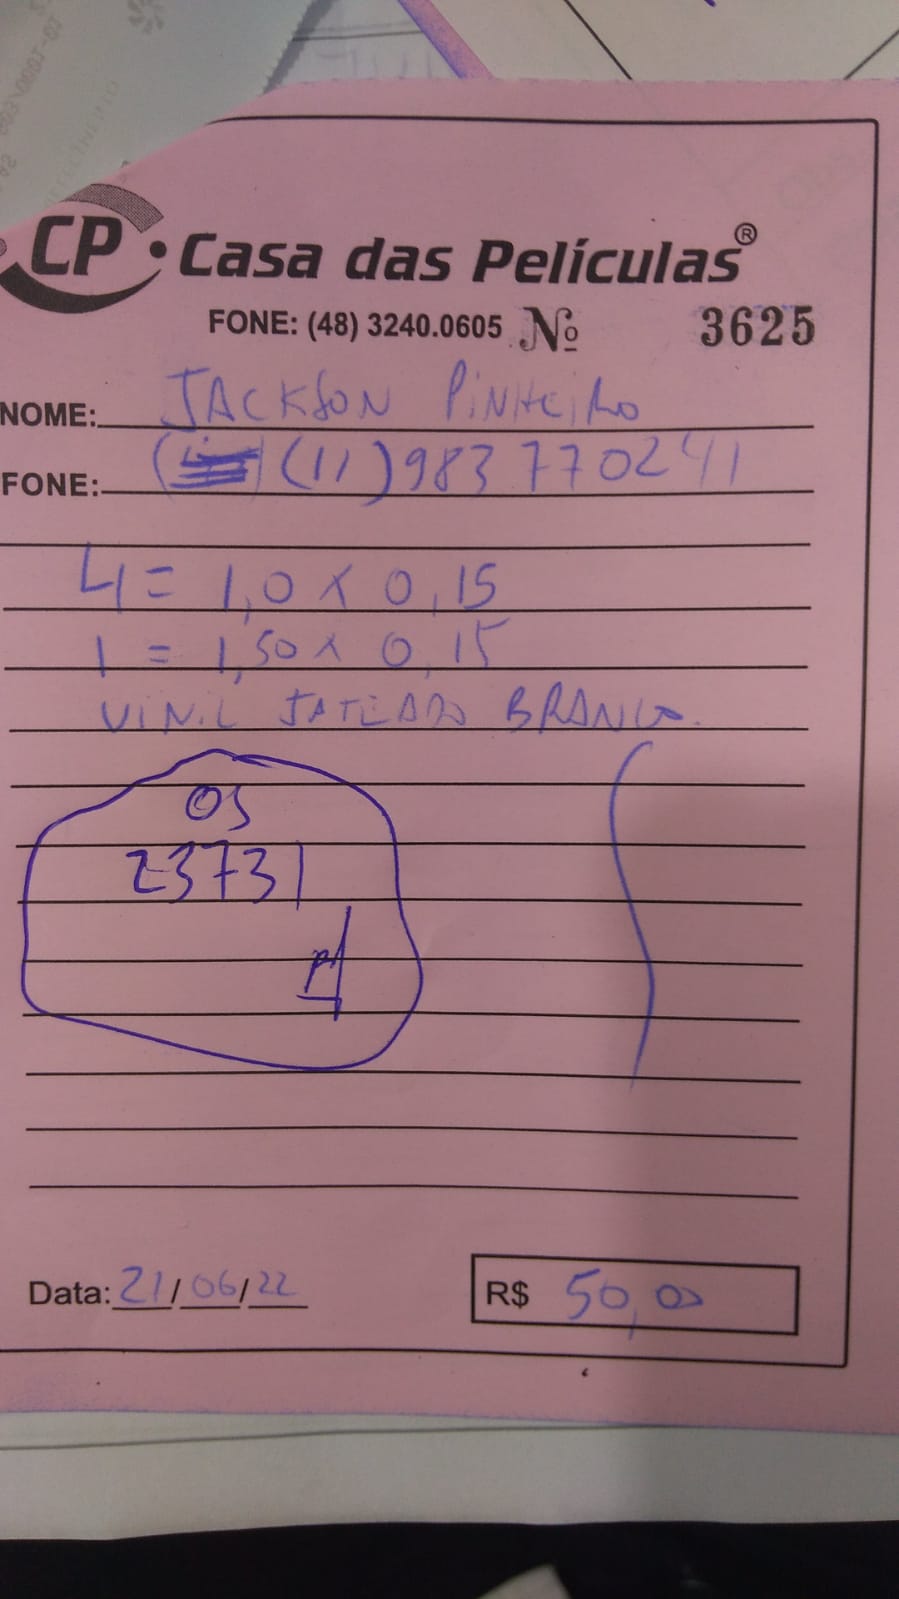 CP Casa das Películas®
FONE: (48) 3240.0605 Nº 3625
NOME: JACKSON PINHEIRO
FONE: (11) 983770241
4 = 1,0 x 0,15
1 = 1,50 x 0,15
VINIL JATEADO BRANCO.
OS
23731
Data: 21/06/22 R$ 50,00